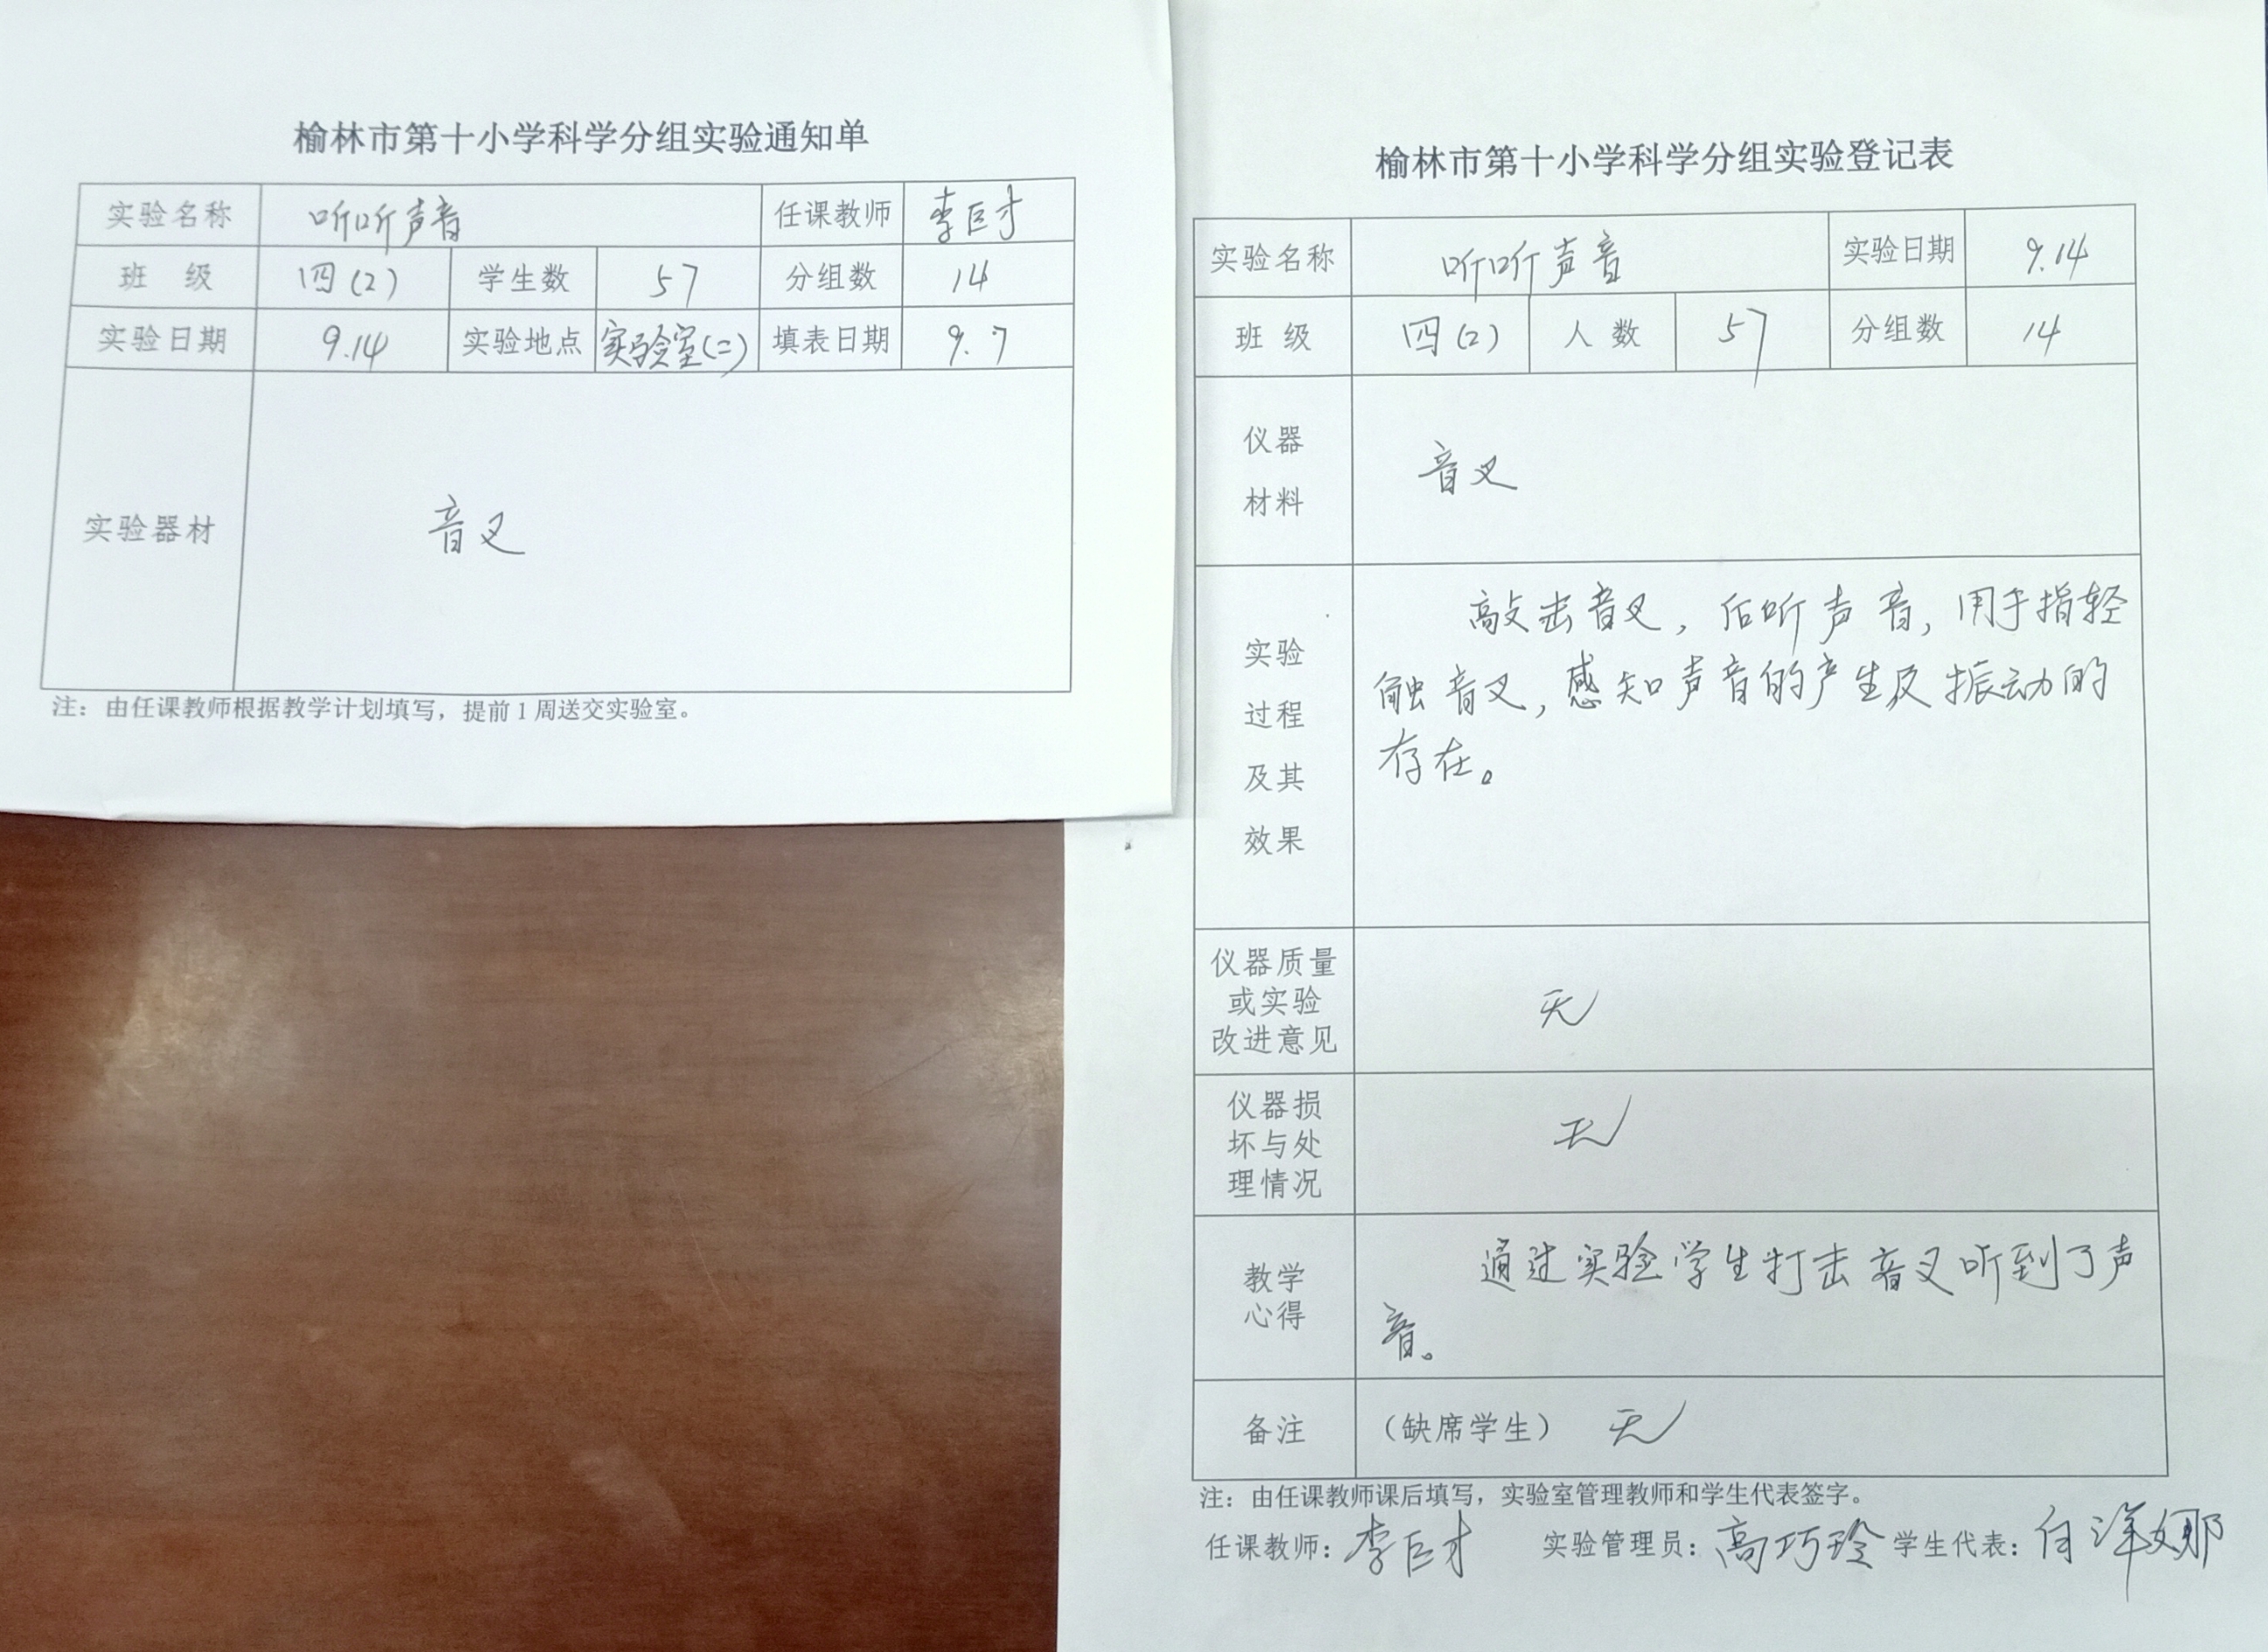 榆林市第十小学科学分组实验通知单
实验名称 听听声音 任课教师 李巨才
班 级 四(2) 学生数 57 分组数 14
实验日期 9.14 实验地点 实验室(二) 填表日期 9.7
实验器材 音叉
注：由任课教师根据教学计划填写，提前1周送交实验室。
榆林市第十小学科学分组实验登记表
实验名称 听听声音 实验日期 9.14
班 级 四(2) 人 数 57 分组数 14
仪器
材料
音叉
实验
过程
及其
效果
敲击音叉，后听声音，用手指轻
触音叉，感知声音的产生及振动的
存在。
仪器质量
或实验
改进意见
无
仪器损
坏与处
理情况
无
教学
心得
通过实验学生打击音叉听到了声
音。
备注 （缺席学生） 无
注：由任课教师课后填写，实验室管理教师和学生代表签字。
任课教师：李巨才 实验管理员：高巧玲 学生代表：白洋娜